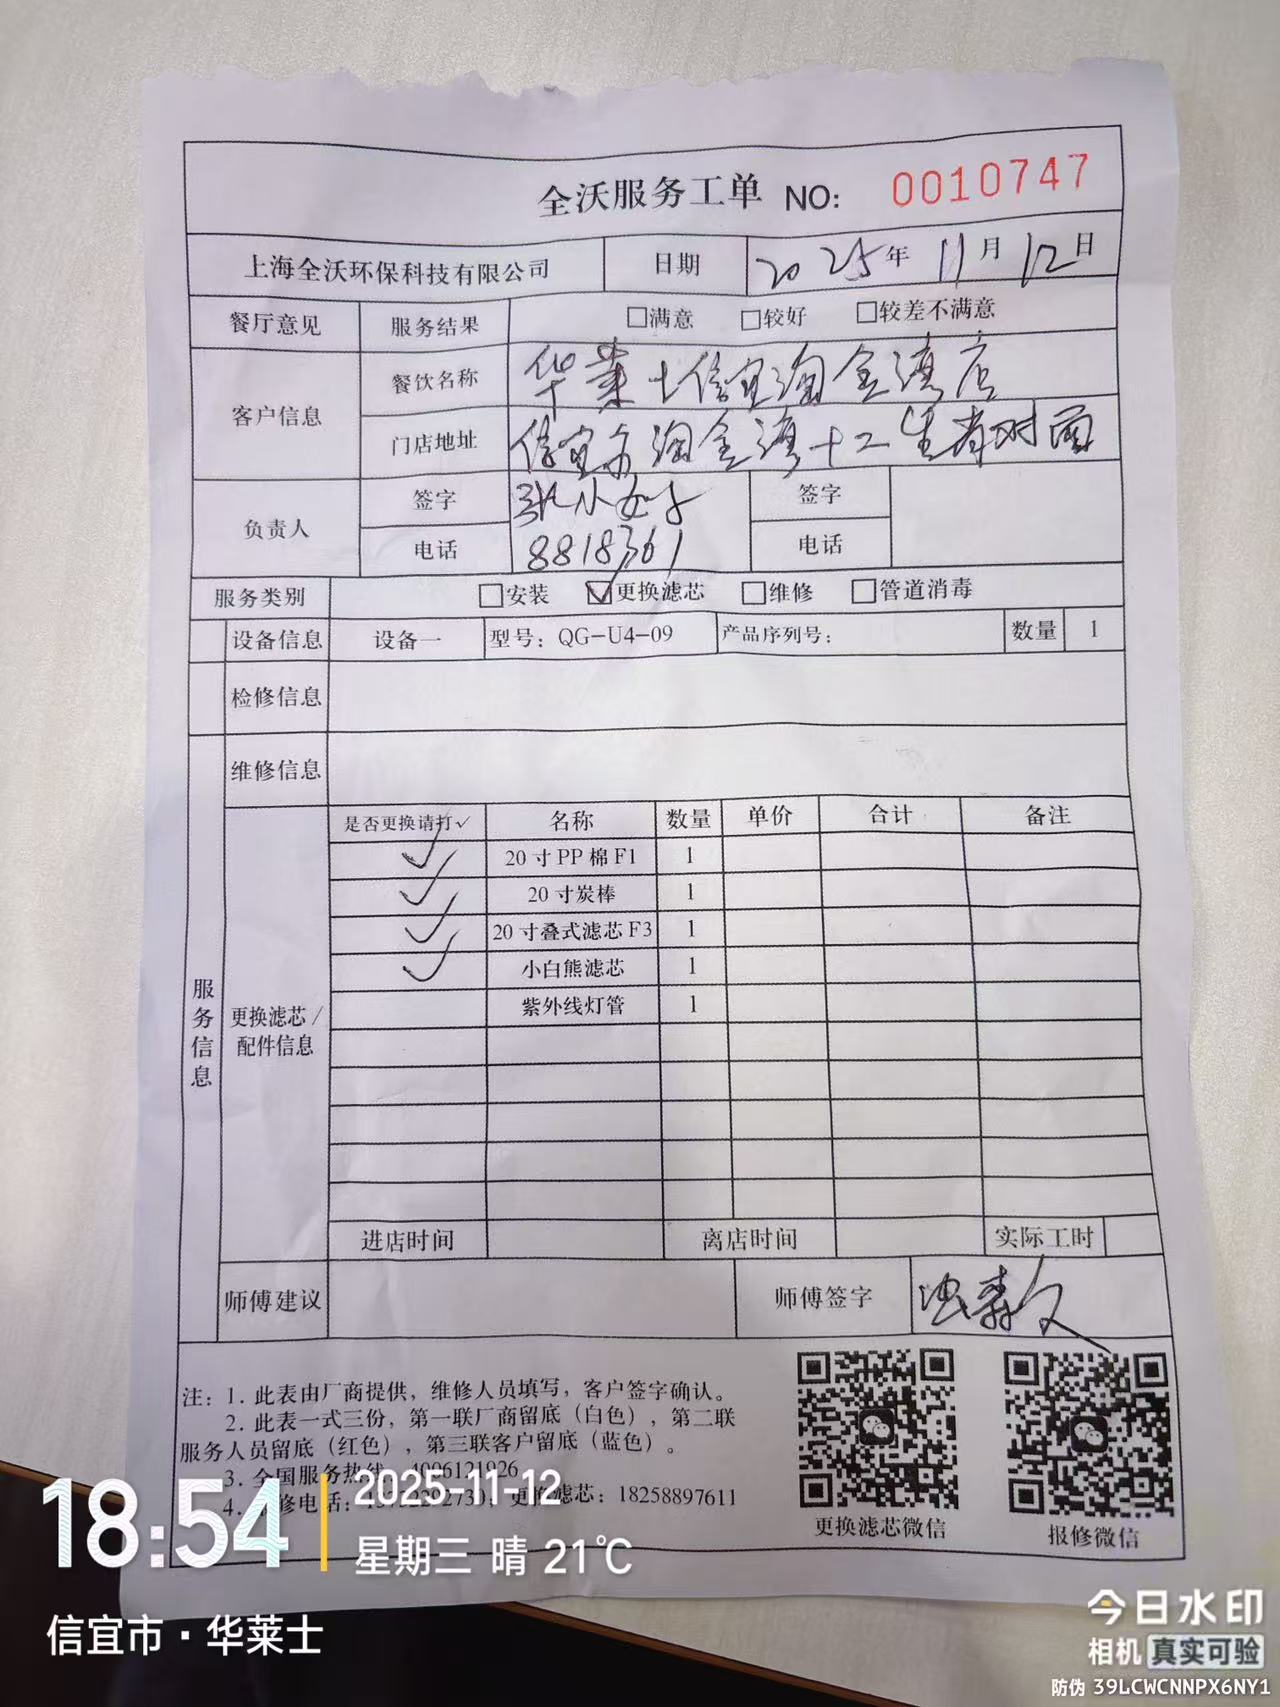 全沃服务工单 NO: 0010747
上海全沃环保科技有限公司 日期 2025年 11月 12日
餐厅意见 服务结果 □满意 □较好 □较差不满意
客户信息 餐饮名称 华莱士信宜淘金湾店
门店地址 信宜市淘金湾十二生肖对面
负责人 签字 张小好 签字
电话 8818361 电话
服务类别 □安装 ☑更换滤芯 □维修 □管道消毒
设备信息 设备一 型号：QG-U4-09 产品序列号： 数量 1
检修信息
维修信息
服务信息
更换滤芯/配件信息
是否更换请打✓ 名称 数量 单价 合计 备注
✓ 20寸PP棉F1 1
✓ 20寸炭棒 1
✓ 20寸叠式滤芯F3 1
✓ 小白熊滤芯 1
紫外线灯管 1
进店时间 离店时间 实际工时
师傅建议 师傅签字
注：1. 此表由厂商提供，维修人员填写，客户签字确认。
2. 此表一式三份，第一联厂商留底（白色），第二联
服务人员留底（红色），第三联客户留底（蓝色）。
3. 全国服务热线 4006121926
4. 修电话： 更换滤芯：18258897611
更换滤芯微信 报修微信
18:54 2025-11-12
星期三 晴 21℃
信宜市·华莱士
今日水印
相机 真实可验
防伪 39LCWCNNPX6NY1